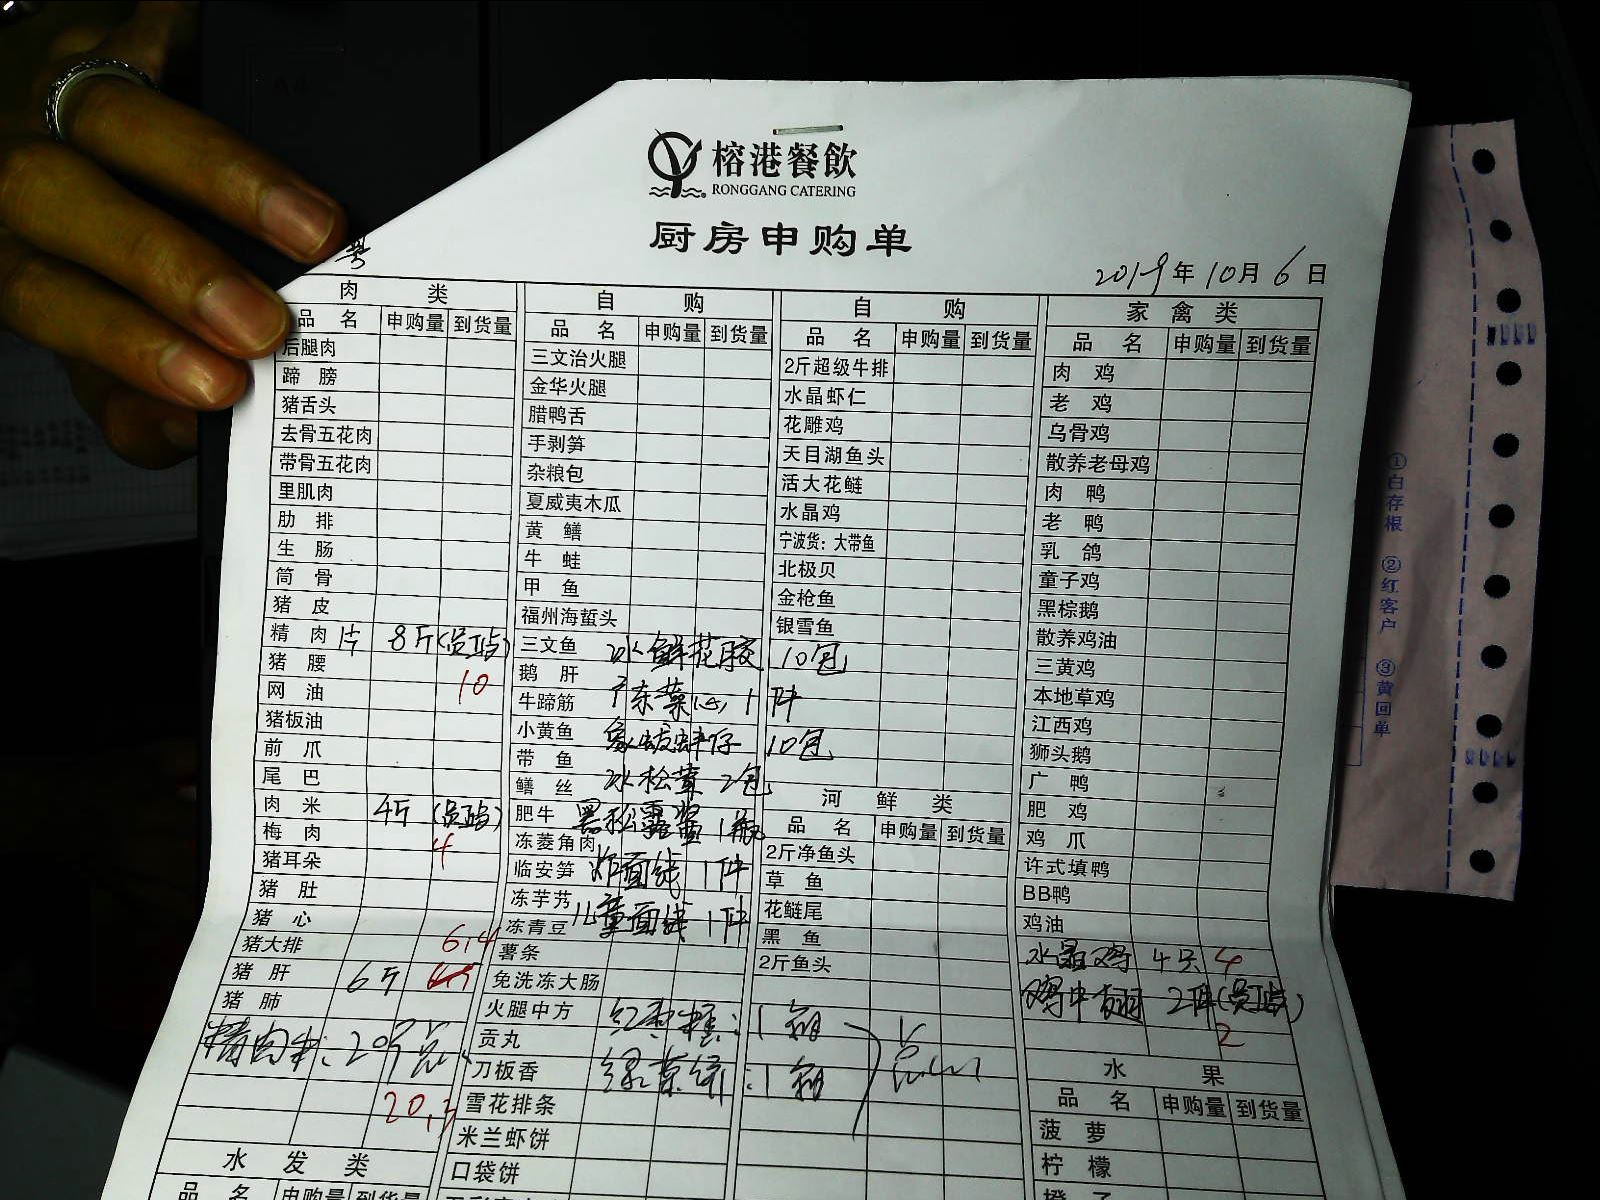 榕港餐飲
RONGGANG CATERING
厨房申购单
2019年10月6日
肉 类
品 名 申购量 到货量
后腿肉
蹄 膀
猪舌头
去骨五花肉
带骨五花肉
里肌肉
肋 排
生 肠
筒 骨
猪 皮
精 肉片 8斤(员工点)
猪 腰 10
网 油
猪板油
前 爪
尾 巴
肉 米 4斤(员工点)
梅 肉 4
猪耳朵
猪 肚
猪 心
猪大排 6.4
猪 肝 6斤
猪 肺
精肉米:20斤点心
20.3
水 发 类
品 名 申购量 到货量
自 购
品 名 申购量 到货量
三文治火腿
金华火腿
腊鸭舌
手剥笋
杂粮包
夏威夷木瓜
黄 鳝
牛 蛙
甲 鱼
福州海蜇头
三文鱼 冰鲜花胶 10包
鹅 肝
牛蹄筋 广东菜心 1件
小黄鱼 象拔蚌仔 10包
带 鱼
鳝 丝 冰松茸 2包
肥牛 黑松露酱 1瓶
冻菱角肉
临安笋 炸面线 1件
冻芋艿
冻青豆 儿童面线 1件
薯条
免洗冻大肠
火腿中方 红枣糕:1箱
贡丸
刀板香 1箱 点心
雪花排条
米兰虾饼
口袋饼
自 购
品 名 申购量 到货量
2斤超级牛排
水晶虾仁
花雕鸡
天目湖鱼头
活大花鲢
水晶鸡
宁波货:大带鱼
北极贝
金枪鱼
银雪鱼
河 鲜 类
品 名 申购量 到货量
2斤净鱼头
草 鱼
花鲢尾
黑 鱼
2斤鱼头
家 禽 类
品 名 申购量 到货量
肉 鸡
老 鸡
乌骨鸡
散养老母鸡
肉 鸭
老 鸭
乳 鸽
童子鸡
黑棕鹅
散养鸡油
三黄鸡
本地草鸡
江西鸡
狮头鹅
广 鸭
肥 鸡
鸡 爪
许式填鸭
BB鸭
鸡油
水晶鸡 4只 4
鸡中翅 2件(员工点)
2
水 果
品 名 申购量 到货量
菠 萝
柠 檬
橙 子
①白存根 ②红客户 ③黄回单